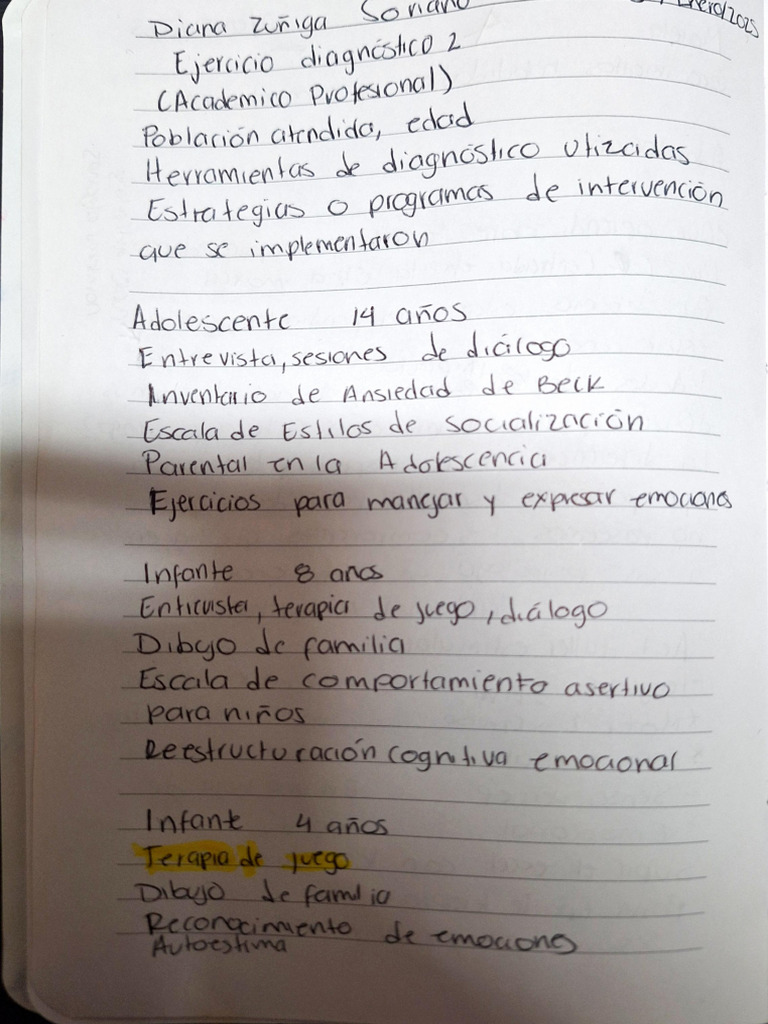 Diana Zuñiga Soriano
Enero/2025
Ejercicio diagnóstico 2
(Academico Profesional)
Población atendida, edad
Herramientas de diagnóstico utizadas
Estrategias o programas de intervención
que se implementaron
Adolescente 14 años
Entrevista, sesiones de diálogo
Inventario de Ansiedad de Beck
Escala de Estilos de socialización
Parental en la Adolescencia
Ejercicios para manejar y expresar emociones
Infante 8 años
Entrevista, terapia de juego, diálogo
Dibujo de familia
Escala de comportamiento asertivo
para niños
Reestructuración cognitiva emocional
Infante 4 años
Terapia de juego
Dibujo de familia
Reconocimiento de emociones
Autoestima